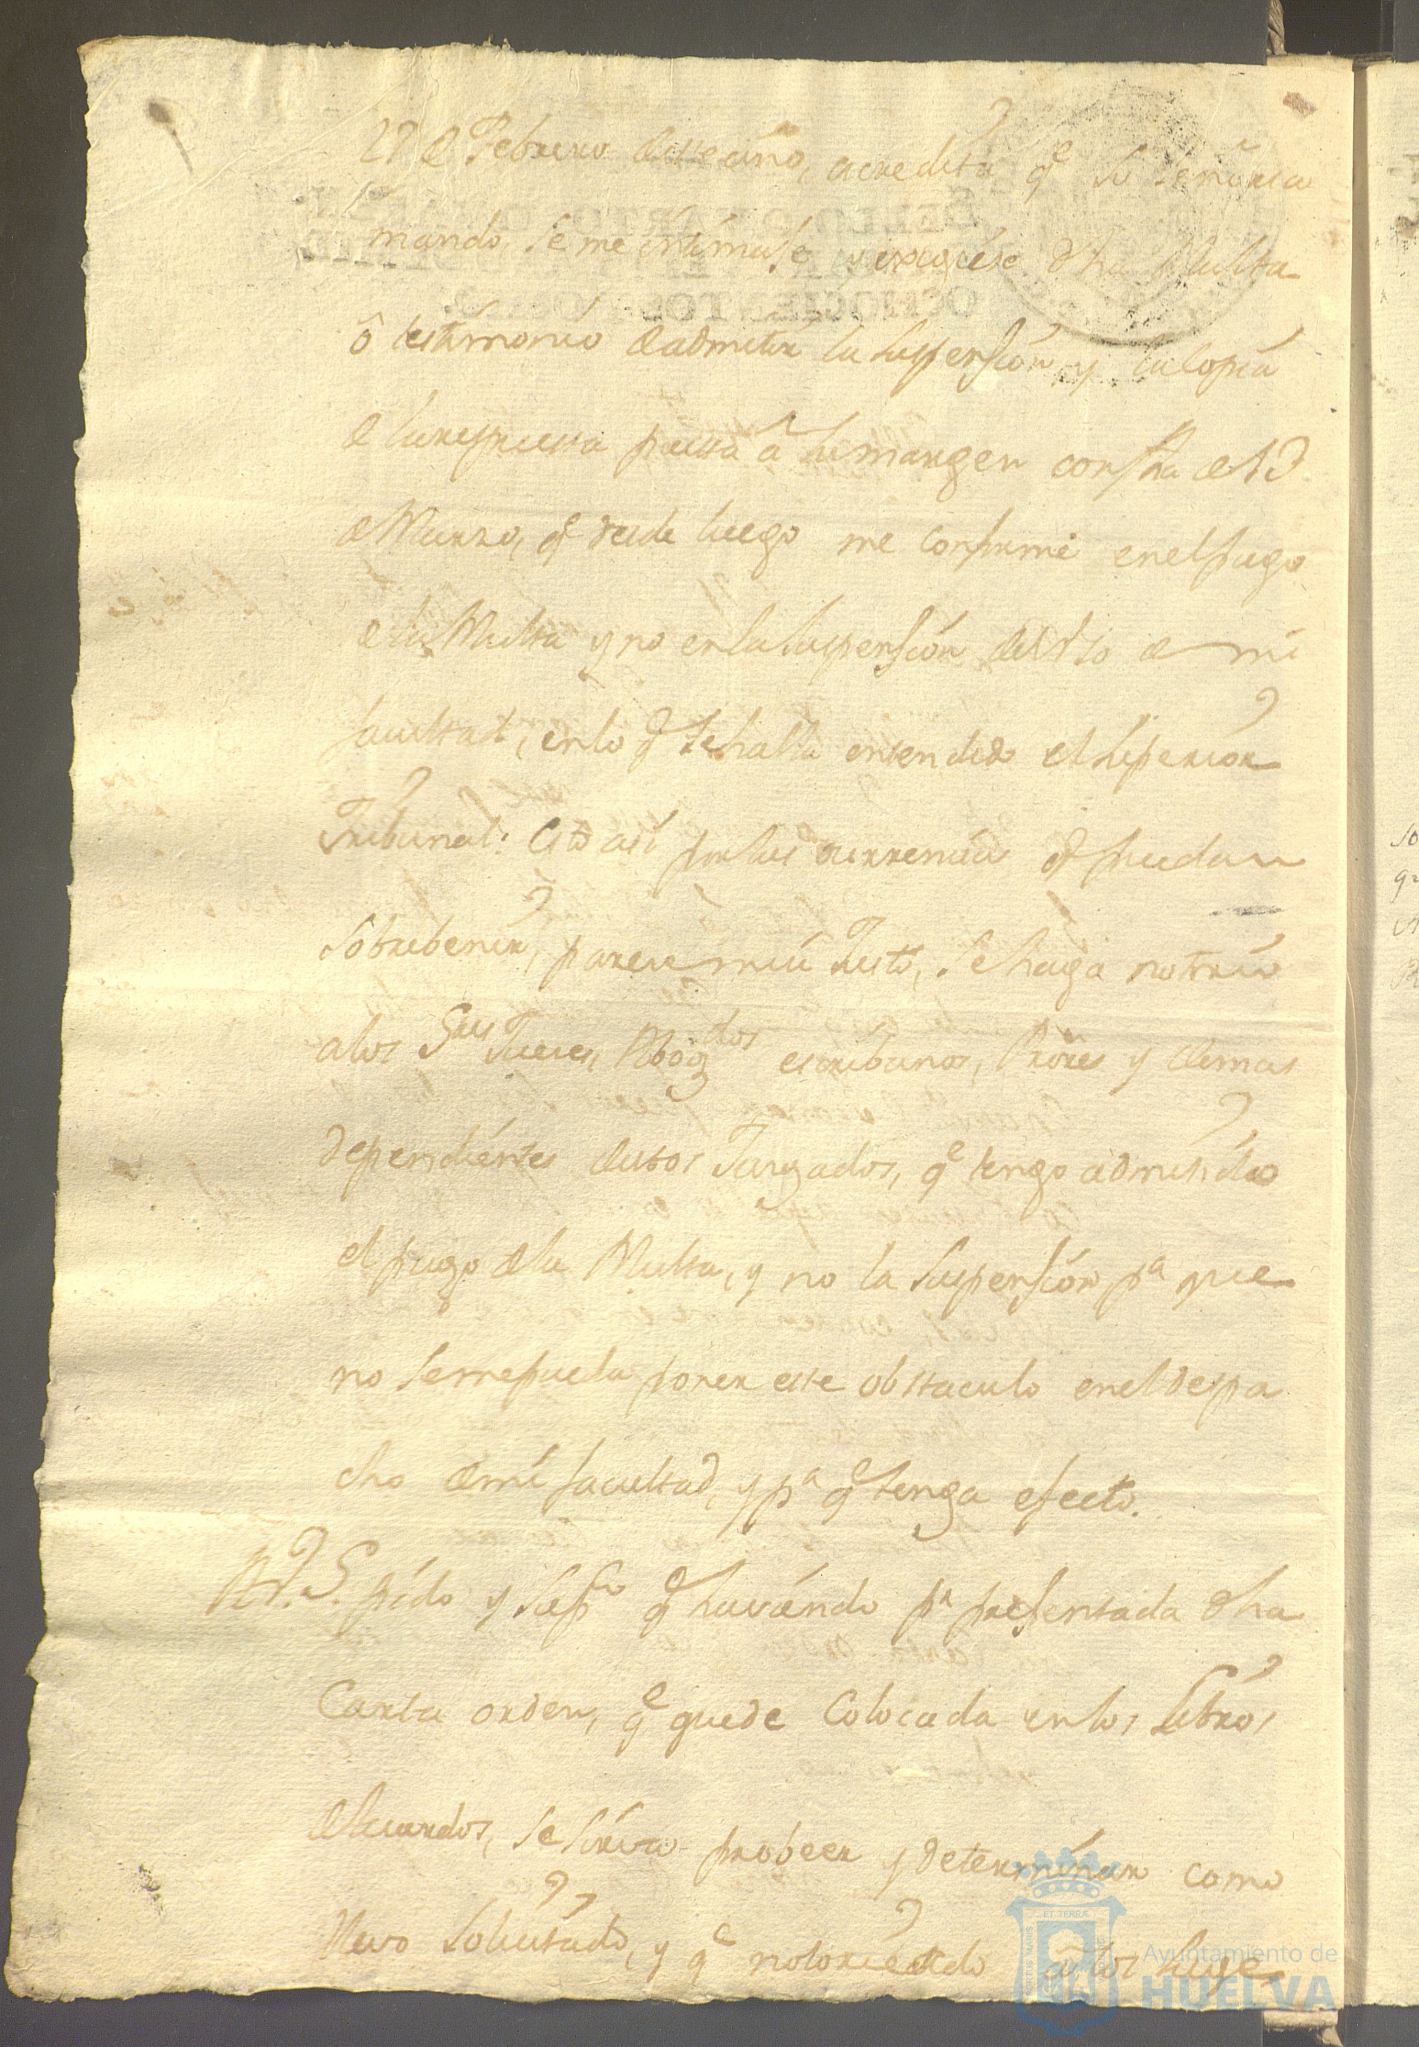 27 de Febrero deste año, acredita q.e Su Señoria
mando, se me intimase y exigiese dha Multa
ô testimonio de admitir la Suspension, y la Copia
de la respuesta puesta â su margen con fha de 12
de Marzo, q.e desde luego me conformé en el pago
de la Multa y no en la Suspension del Uso de mi
facultad, en lo q.e se halla entendido el Superior
Tribunal: Esto asi por las ocurrencias q.e puedan
Sobrebenir, parece mui Justo, se haga notorio
a los S.res Jueces, Abog.dos escribanos, Prôres y demas
dependientes de estos Juzgados, q.e tengo admitido
el pago de la Multa, y no la Suspension p.a que
no se me pueda poner este obstaculo en el despa
cho de mi facultad, y p.a q.e tenga efecto.
A V.S. pido y sup.co q.e haviendo p.r presentada dha
Carta orden, q.e quede Colocada en los Libros
de Acuerdos, se sirva probeer y determinar como
llevo Solicitado, y q.e notoriedado â los Jueces
Ayuntamiento de
HUELVA